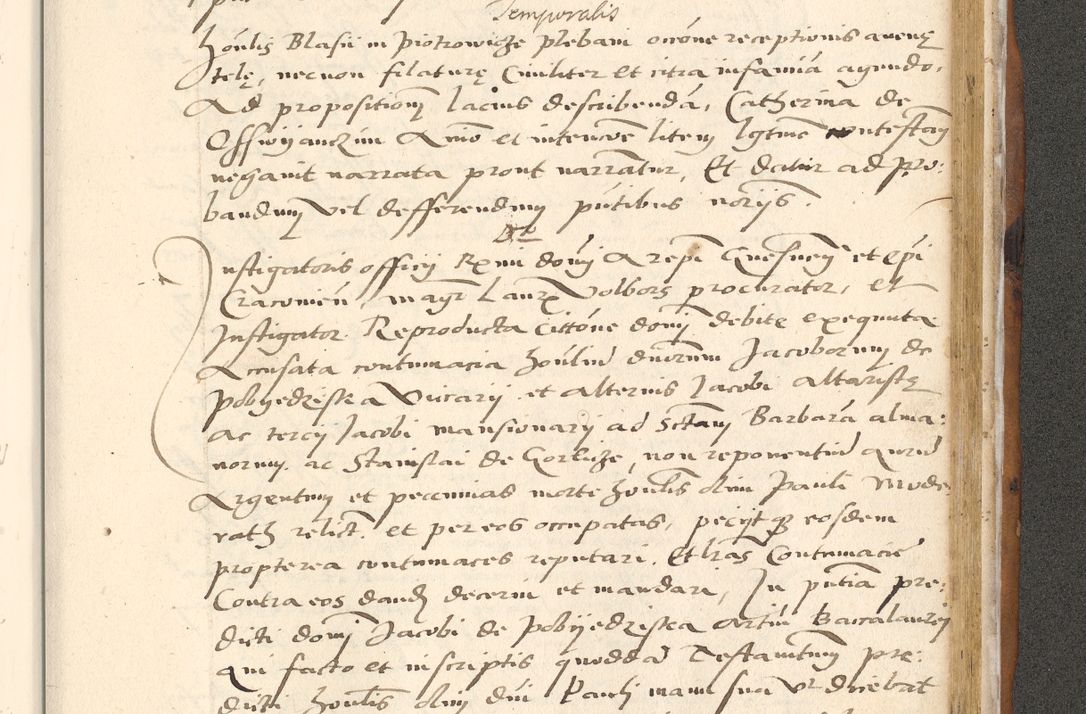 Temporalis
Honlis Blasii in Piotrowicze plebani occone receptionis avenę
telę, necnon filaturę Civiliter Et citra infamia agendo.
Ad propositionem lacius describendã, Catherina de
Osswijanczim Animo et intencione litem lgtime contestan
negavit narrata prout narrantur, Et datur ad pro:
bandum vel defferendum putibus noriis.
Instigatoris officij Rxmi domi Arepi Gnesnen et Epi
Cracovien, magr Laur Volbors procurator, et
Instigator. Reproducta cittone domi debite exequuta
Accusata contumacia honlium duorum Jacoborum de
Pobyedziska Vicarij et alterius Jacobi altaristę
ac tercij Jacobi mansionarij ad Sctam Barbarã alma:
norum. ac Stanislai de Gorlicze, non reponentium aurum
Argentum et pecunias morte honlis olim Pauli Mode:
rath relict. et per eos occupatas, pecijt eosdem
propterea contumaces reputari. Et lras Contumacie
Contra eos dandas decerni et mandari, In putia pre:
dicti domi Jacobi de Pobyedziska Artium Baccalaurij
qui facto et in scriptis quoddã Testamtum pre:
dicti honlis olim dni Pauli manu sua ut dicebat